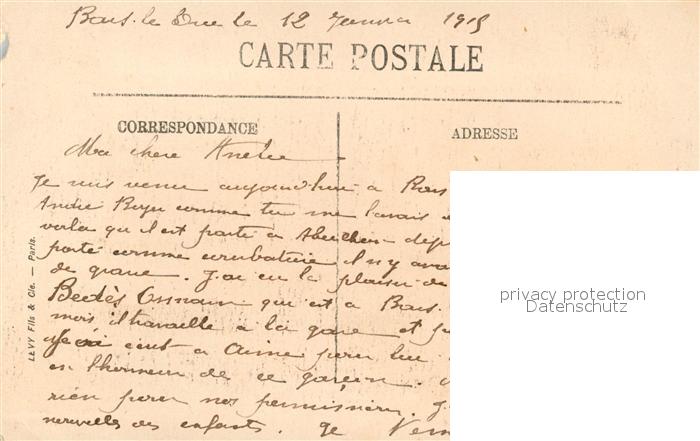 Bar-le Duc le 12 Janvier 1915
CARTE POSTALE
CORRESPONDANCE
ADRESSE
Ma chere Amelie
Je suis venu aujourd'hui a Bar
André comme tu me l'avais
voila qu'il est parti a
porté comme il n'y avait
de grave. J'ai eu le plaisir de
qui est a Bar.
mois il travaille a la gare et
J'ai écrit a Aimé pour lui
en l'honneur de ce garçon.
rien pour nos permissions. J
nouvelles des enfants. Je
LEVY Fils & Cie. — Paris.
privacy protection
Datenschutz